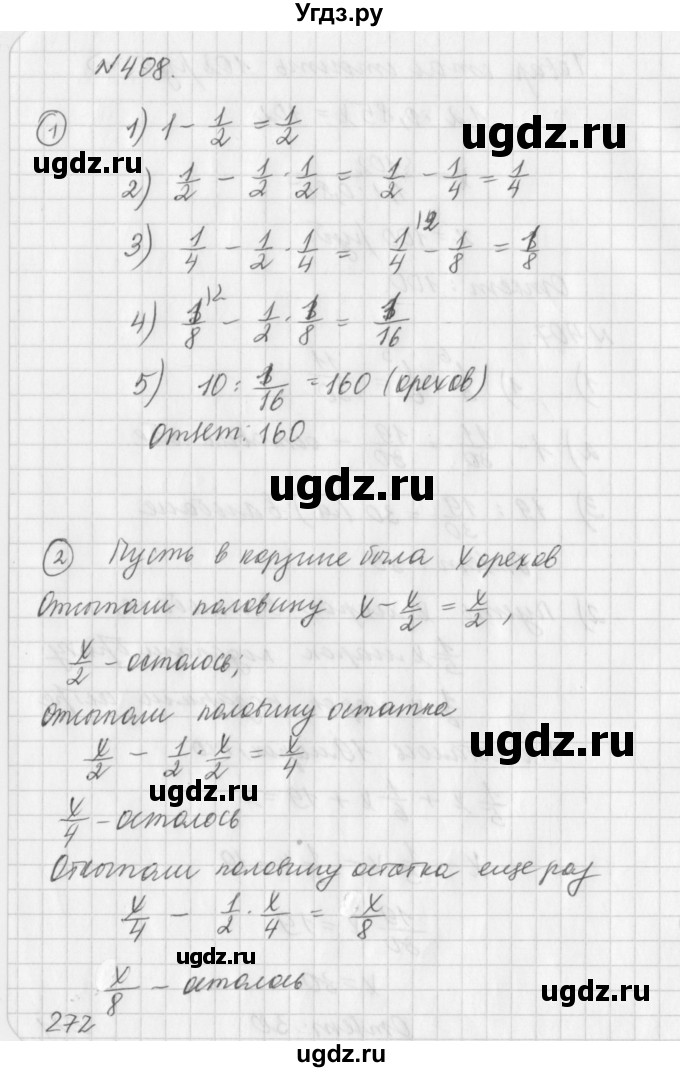 Угдз.ру
№408.
① 1) 1 - 1/2 = 1/2
ugdz.ru
ugdz.ru
2) 1/2 - 1/2 · 1/2 = 1/2 - 1/4 = 1/4
3) 1/4 - 1/2 · 1/4 = 1/4 \2 - 1/8 = 1/8
4) 1/8 \2 - 1/2 · 1/8 = 1/16
5) 10 : 1/16 = 160 (орехов)
Ответ: 160
ugdz.ru
② Пусть в корзине было x орехов
Отсыпали половину x - x/2 = x/2,
x/2 - осталось;
ugdz.ru
Отсыпали половину остатка
x/2 - 1/2 · x/2 = x/4
ugdz.ru
ugdz.ru
x/4 - осталось
Отсыпали половину остатка еще раз
x/4 - 1/2 · x/4 = x/8
ugdz.ru
x/8 - осталось
272
ugdz.ru
ugdz.ru